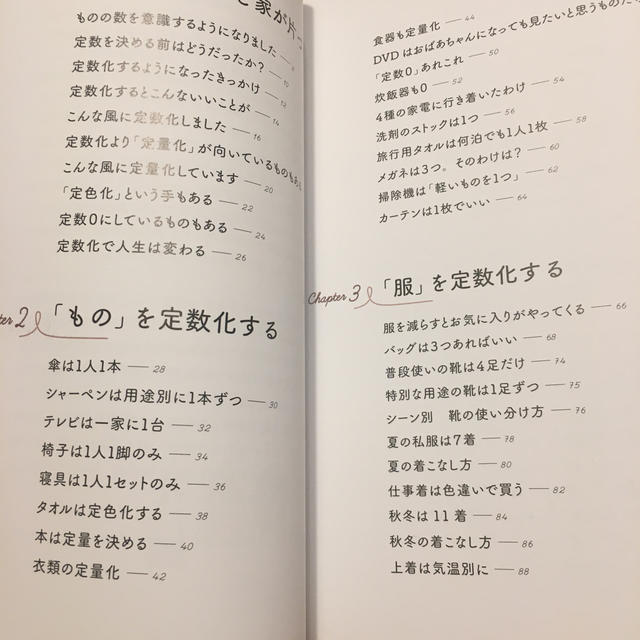 と家が片っ
ものの数を意識するようになりました
定数を決める前はどうだったか? — 10
定数化するようになったきっかけ — 12
定数化するとこんないいことが — 14
こんな風に定数化しました — 16
定数化より「定量化」が向いているものもある
こんな風に定量化しています — 20
「定色化」という手もある — 22
定数0にしているものもある — 24
定数化で人生は変わる — 26
ter 2 「もの」を定数化する
傘は1人1本 — 28
シャーペンは用途別に1本ずつ — 30
テレビは一家に1台 — 32
椅子は1人1脚のみ — 34
寝具は1人1セットのみ — 36
タオルは定色化する — 38
本は定量を決める — 40
衣類の定量化 — 42
食器も定量化 — 44
DVDはおばあちゃんになっても見たいと思うものだけ
「定数0」あれこれ — 50
炊飯器も0 — 52
4種の家電に行き着いたわけ — 54
洗剤のストックは1つ — 56
旅行用タオルは何泊でも1人1枚 — 58
メガネは3つ。そのわけは? — 60
掃除機は「軽いものを1つ」 — 62
カーテンは1枚でいい — 64
Chapter 3 「服」を定数化する
服を減らすとお気に入りがやってくる — 66
バッグは3つあればいい — 68
普段使いの靴は4足だけ — 74
特別な用途の靴は1足ずつ — 75
シーン別 靴の使い分け方 — 76
夏の私服は7着 — 78
夏の着こなし方 — 80
仕事着は色違いで買う — 82
秋冬は11着 — 84
秋冬の着こなし方 — 86
上着は気温別に — 88